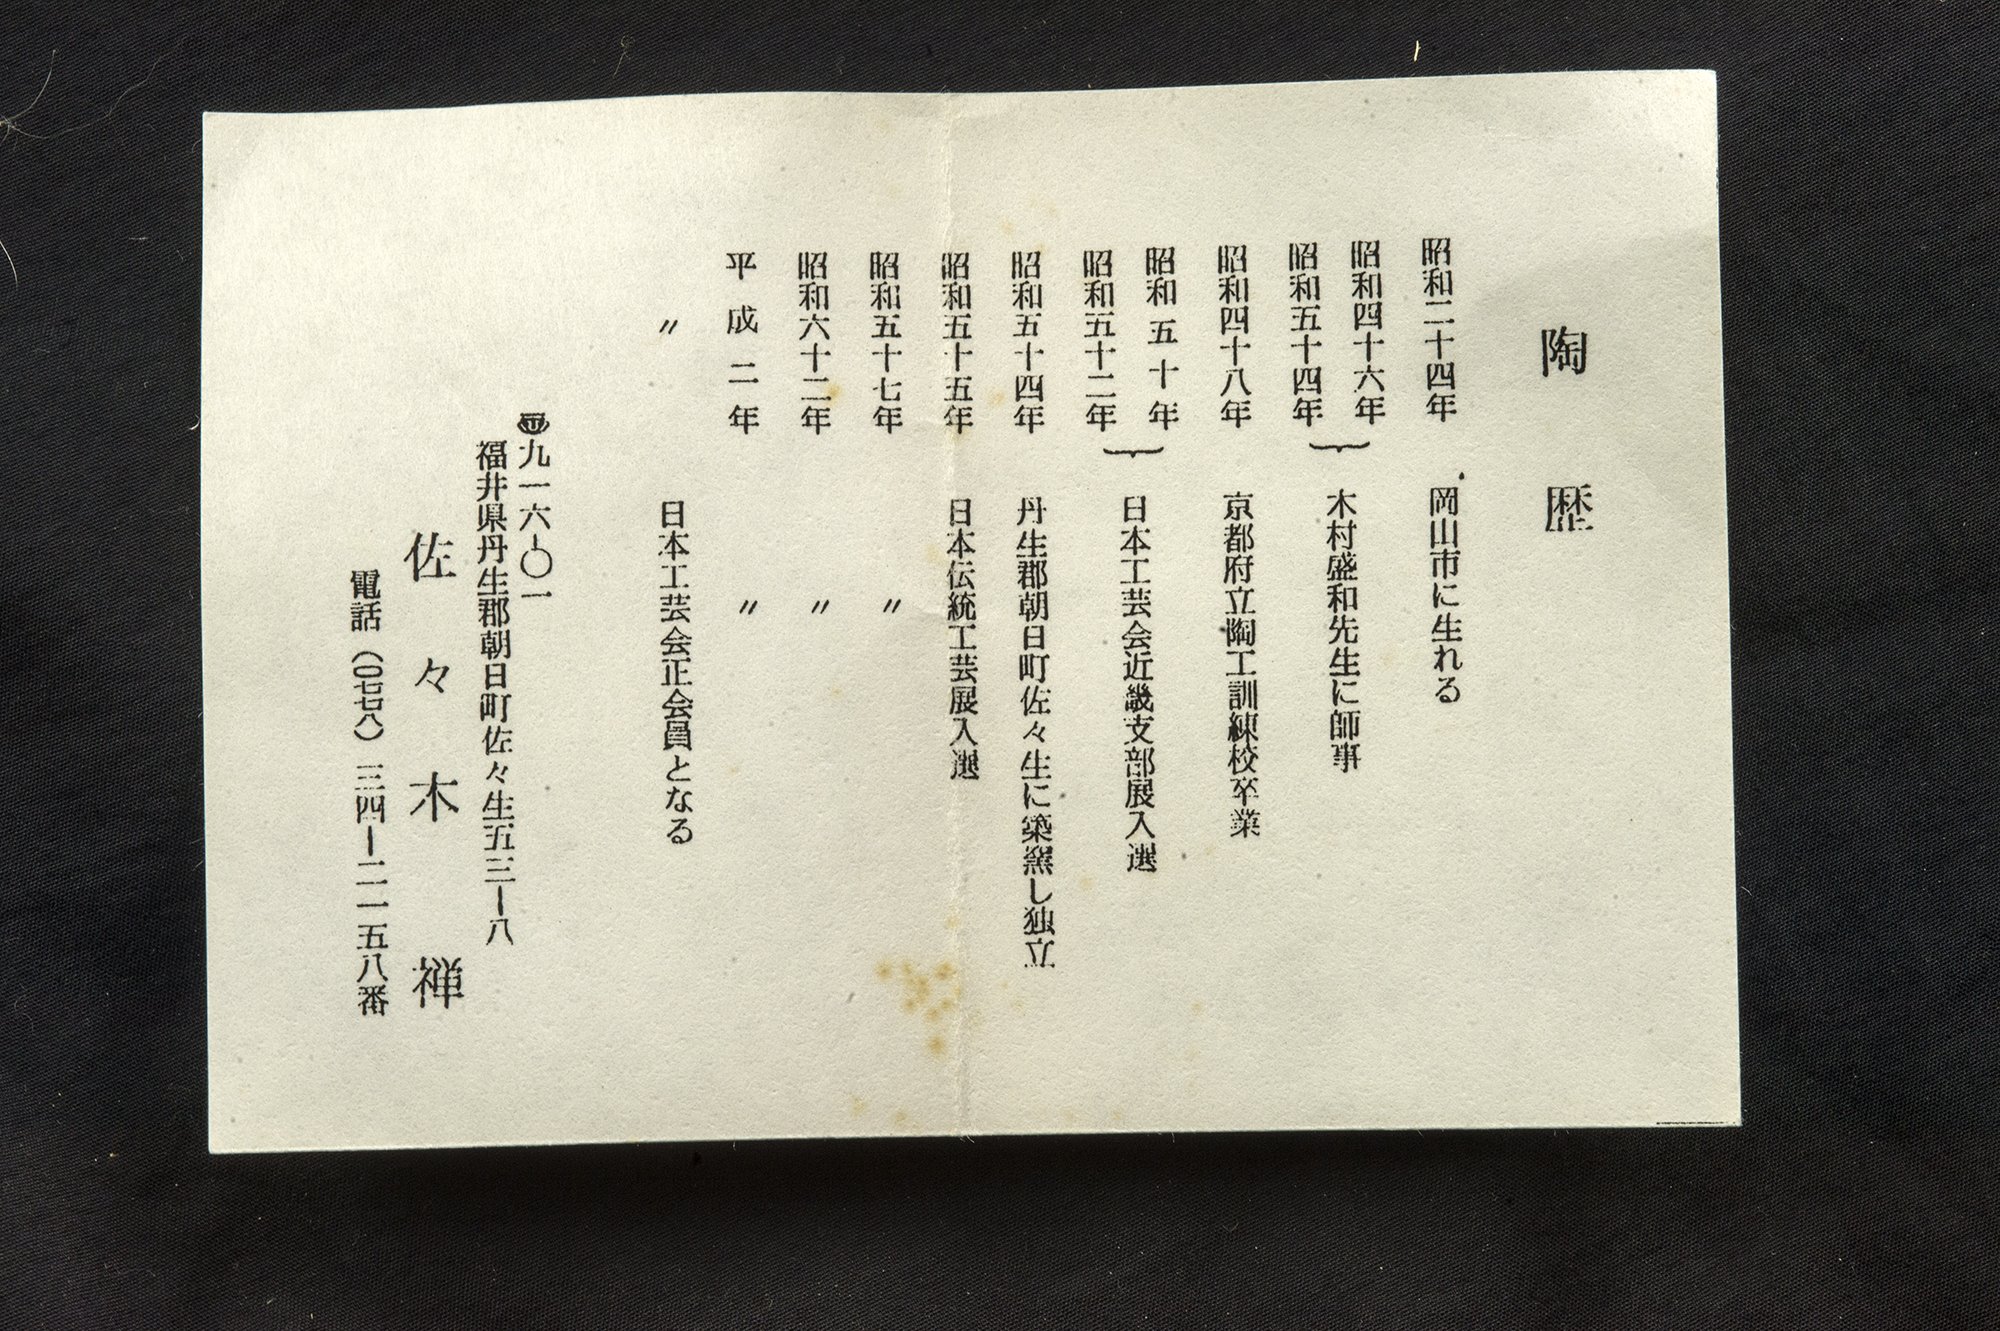 陶歴
昭和二十四年 岡山市に生れる
昭和四十六年
昭和五十四年 } 木村盛和先生に師事
昭和四十八年 京都府立陶工訓練校卒業
昭和五十年
昭和五十二年 } 日本工芸会近畿支部展入選
昭和五十四年 丹生郡朝日町佐々生に築窯し独立
昭和五十五年 日本伝統工芸展入選
昭和五十七年 〃
昭和六十二年 〃
平成二年 〃
〃 日本工芸会正会員となる
〒九一六-〇一
福井県丹生郡朝日町佐々生五三ー八
佐々木禅
電話(〇七七八)三四ー二一五八番